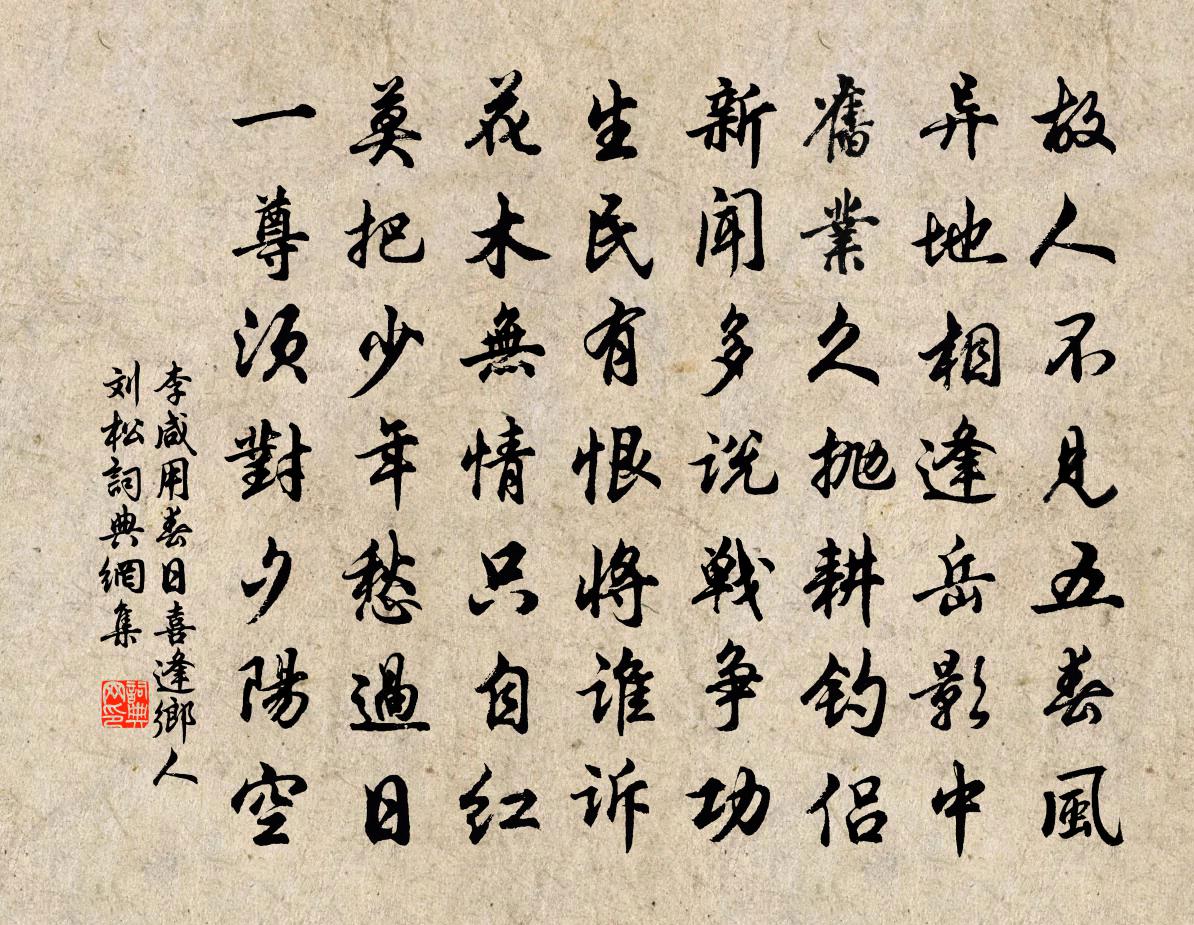 故人不見五春風
异地相逢岳影中
舊業久抛耕钓侣
新聞多说戦争功
生民有恨将谁诉
花木無情只自红
莫把少年愁過日
一尊须對夕陽空
李咸用春日喜逢鄉人
刘松詞典網集
詞典
网印